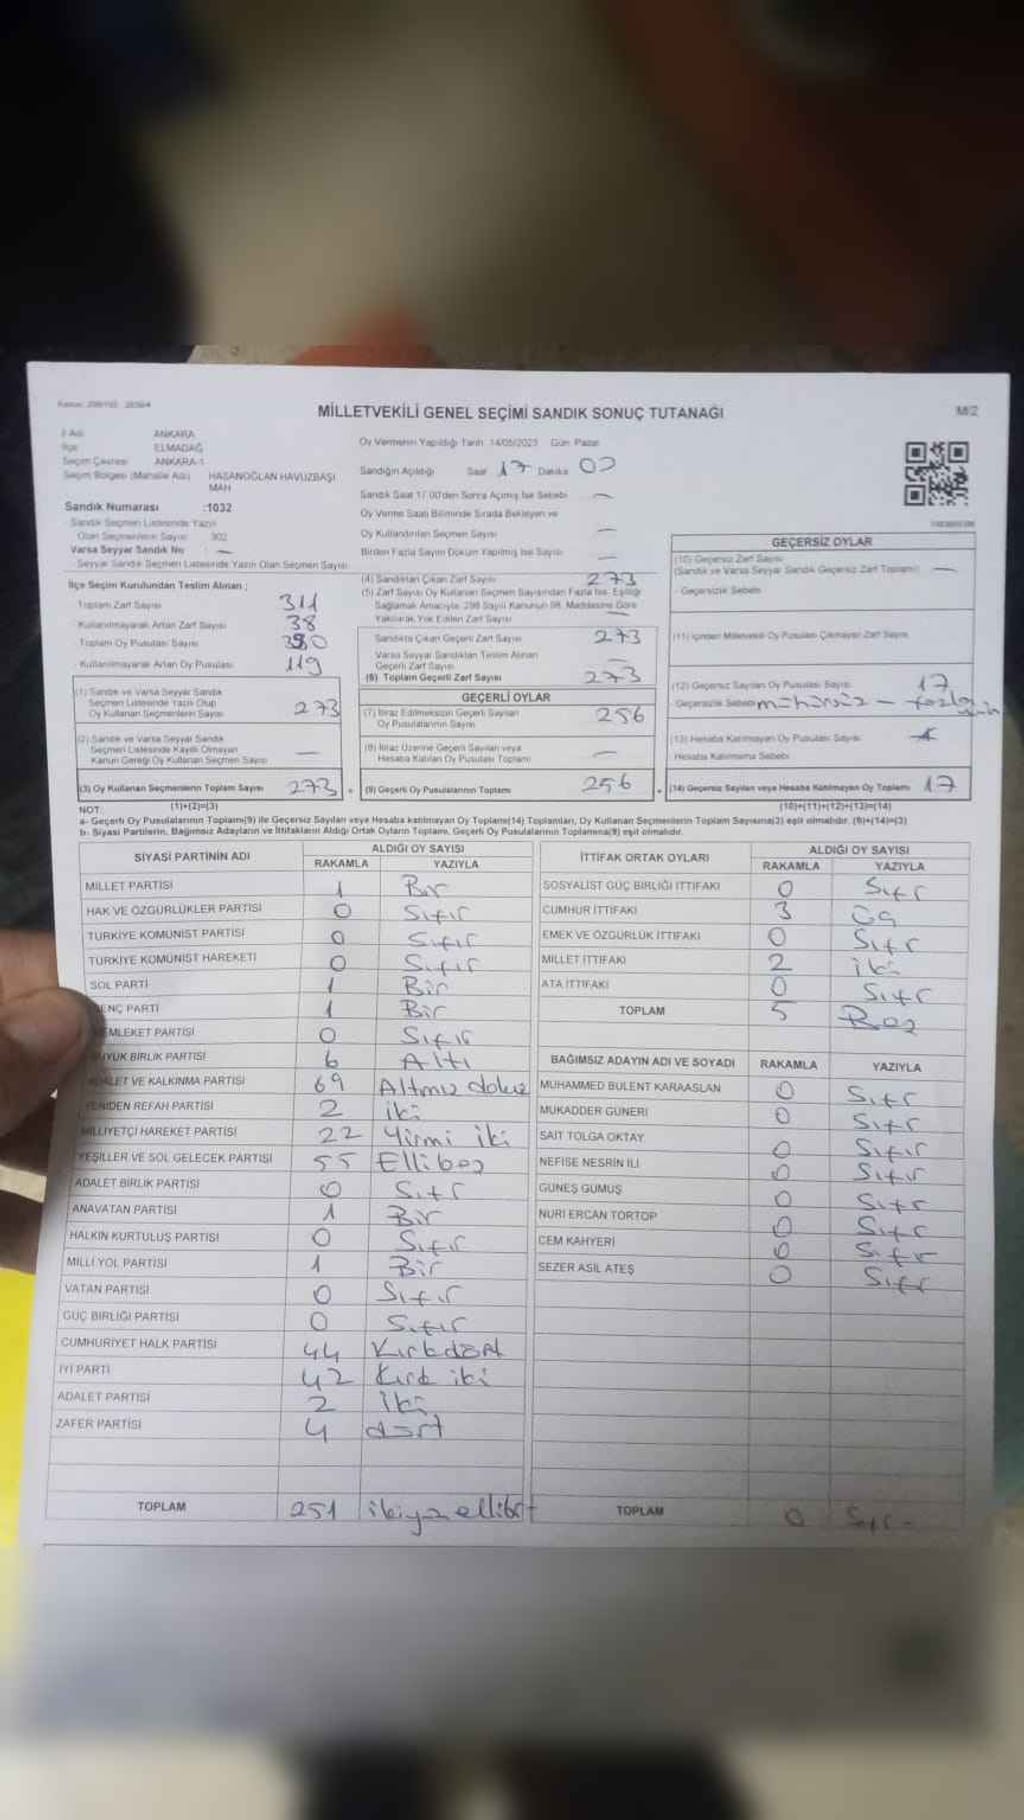 MİLLETVEKİLİ GENEL SEÇİMİ SANDIK SONUÇ TUTANAĞI
M/2
İl Adı ANKARA
İlçe ELMADAĞ
Seçim Çevresi ANKARA-1
Seçim Bölgesi (Mahalle Adı) HASANOĞLAN HAVUZBAŞI MAH
Sandık Numarası :1032
Sandık Seçmen Listesinde Yazılı
Olan Seçmenlerin Sayısı 302
Varsa Seyyar Sandık No : —
Seyyar Sandık Seçmen Listesinde Yazılı Olan Seçmen Sayısı
Oy Vermenin Yapıldığı Tarih 14/05/2023 Gün Pazar
Sandığın Açıldığı Saat 17 Dakika 00
Sandık Saat 17.00'den Sonra Açılmış İse Sebebi —
Oy Verme Saati Bitiminde Sırada Bekleyen ve
Oy Kullandırılan Seçmen Sayısı —
Birden Fazla Sayım Döküm Yapılmış İse Sayısı —
İlçe Seçim Kurulundan Teslim Alınan ;
Toplam Zarf Sayısı 311
Kullanılmayarak Artan Zarf Sayısı 38
Toplam Oy Pusulası Sayısı
Kullanılmayarak Artan Oy Pusulası 119
(1) Sandık ve Varsa Seyyar Sandık
Seçmen Listesinde Yazılı Olup
Oy Kullanan Seçmenlerin Sayısı 273
(2) Sandık ve Varsa Seyyar Sandık
Seçmen Listesinde Kayıtlı Olmayan
Kanun Gereği Oy Kullanan Seçmen Sayısı —
(3) Oy Kullanan Seçmenlerin Toplam Sayısı 273
(4) Sandıktan Çıkan Zarf Sayısı 273
(5) Zarf Sayısı Oy Kullanan Seçmen Sayısından Fazla İse, Eşitliği
Sağlamak Amacıyla 298 Sayılı Kanunun 98. Maddesine Göre
Yakılarak Yok Edilen Zarf Sayısı —
Sandıkta Çıkan Geçerli Zarf Sayısı 273
Varsa Seyyar Sandıktan Teslim Alınan
Geçerli Zarf Sayısı —
(6) Toplam Geçerli Zarf Sayısı 273
GEÇERLİ OYLAR
(7) İtiraz Edilmeksizin Geçerli Sayılan
Oy Pusulalarının Sayısı 256
(8) İtiraz Üzerine Geçerli Sayılan veya
Hesaba Katılan Oy Pusulası Toplamı —
(9) Geçerli Oy Pusulalarının Toplamı 256
GEÇERSİZ OYLAR
(10) Geçersiz Zarf Sayısı
(Sandık ve Varsa Seyyar Sandık Geçersiz Zarf Toplamı) —
Geçersizlik Sebebi
(11) İçinden Milletvekili Oy Pusulası Çıkmayan Zarf Sayısı
(12) Geçersiz Sayılan Oy Pusulası Sayısı 17
Geçersizlik Sebebi mühürsüz –
(13) Hesaba Katılmayan Oy Pusulası Sayısı
Hesaba Katılmama Sebebi
(14) Geçersiz Sayılan veya Hesaba Katılmayan Oy Toplamı 17
NOT: (1)+(2)=(3)
(10)+(11)+(12)+(13)=(14)
a- Geçerli Oy Pusulalarının Toplamı(9) ile Geçersiz Sayılan veya Hesaba katılmayan Oy Toplamı(14) Toplamları, Oy Kullanan Seçmenlerin Toplam Sayısına(3) eşit olmalıdır. (9)+(14)=(3)
b- Siyasi Partilerin, Bağımsız Adayların ve İttifakların Aldığı Ortak Oyların Toplamı, Geçerli Oy Pusulalarının Toplamına(9) eşit olmalıdır.
SİYASİ PARTİNİN ADI ALDIĞI OY SAYISI
RAKAMLA YAZIYLA
MİLLET PARTİSİ 1 Bir
HAK VE ÖZGÜRLÜKLER PARTİSİ 0 Sıfır
TÜRKİYE KOMÜNİST PARTİSİ 0 Sıfır
TÜRKİYE KOMÜNİST HAREKETİ 0 Sıfır
SOL PARTİ 1 Bir
ENÇ PARTİ 1 Bir
EMLEKET PARTİSİ 0 Sıfır
ÜYÜK BİRLİK PARTİSİ 6 Altı
ADALET VE KALKINMA PARTİSİ 69 Altmış dokuz
YENİDEN REFAH PARTİSİ 2 iki
MİLLİYETÇİ HAREKET PARTİSİ 22 Yirmi iki
YEŞİLLER VE SOL GELECEK PARTİSİ 55 Ellibeş
ADALET BİRLİK PARTİSİ 0 Sıfır
ANAVATAN PARTİSİ 1 Bir
HALKIN KURTULUŞ PARTİSİ 0 Sıfır
MİLLİ YOL PARTİSİ 1 Bir
VATAN PARTİSİ 0 Sıfır
GÜÇ BİRLİĞİ PARTİSİ 0 Sıfır
CUMHURİYET HALK PARTİSİ 44 Kırkdört
İYİ PARTİ 42 Kırk iki
ADALET PARTİSİ 2 İki
ZAFER PARTİSİ 4 dört
TOPLAM 251 ikiyüzellibir
İTTİFAK ORTAK OYLARI ALDIĞI OY SAYISI
RAKAMLA YAZIYLA
SOSYALİST GÜÇ BİRLİĞİ İTTİFAKI 0 Sıfır
CUMHUR İTTİFAKI 3 Üç
EMEK VE ÖZGÜRLÜK İTTİFAKI 0 Sıfır
MİLLET İTTİFAKI 2 iki
ATA İTTİFAKI 0 Sıfır
TOPLAM 5 Beş
BAĞIMSIZ ADAYIN ADI VE SOYADI RAKAMLA YAZIYLA
MUHAMMED BÜLENT KARAASLAN 0 Sıfır
MUKADDER GÜNERİ 0 Sıfır
SAİT TOLGA OKTAY 0 Sıfır
NEFİSE NESRİN İLİ 0 Sıfır
GÜNEŞ GÜMÜŞ 0 Sıfır
NURİ ERCAN TORTOP 0 Sıfır
CEM KAHYERİ 0 Sıfır
SEZER ASİL ATEŞ 0 Sıfır
TOPLAM 0 Sıfır